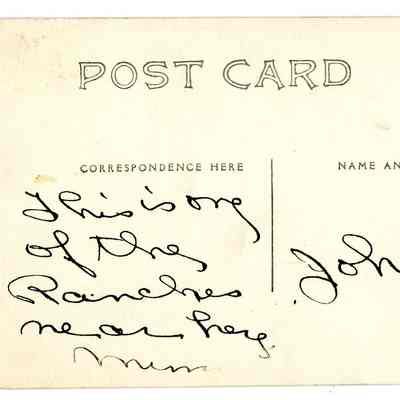 POST CARD
CORRESPONDENCE HERE
NAME AN
This is one
of the
Ranches
near here.
Mim
Joh